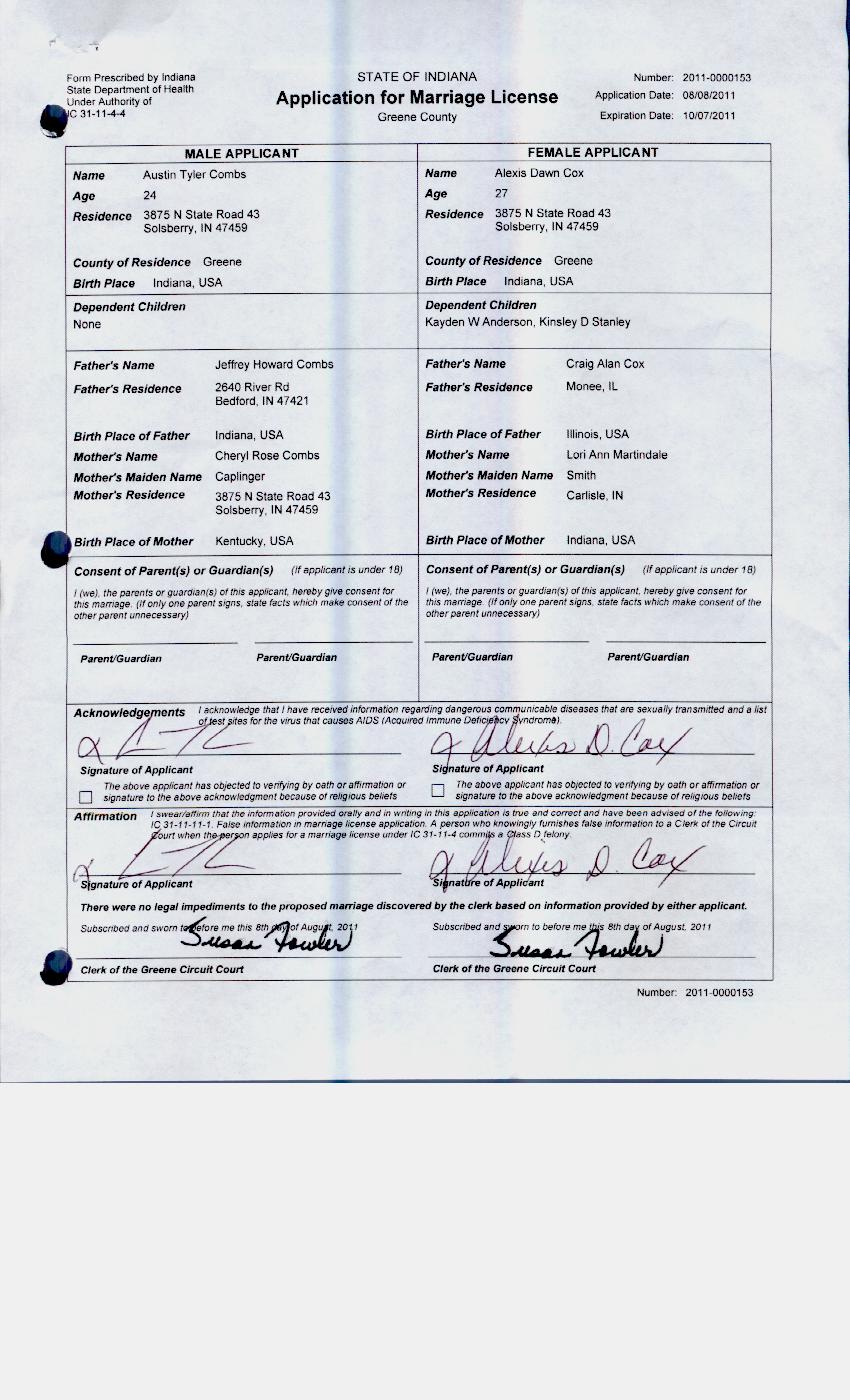 Form Prescribed by Indiana
State Department of Health
Under Authority of
IC 31-11-4-4
STATE OF INDIANA
Application for Marriage License
Greene County
Number: 2011-0000153
Application Date: 08/08/2011
Expiration Date: 10/07/2011
MALE APPLICANT
Name Austin Tyler Combs
Age 24
Residence 3875 N State Road 43
Solsberry, IN 47459
County of Residence Greene
Birth Place Indiana, USA
Dependent Children
None
Father's Name Jeffrey Howard Combs
Father's Residence 2640 River Rd
Bedford, IN 47421
Birth Place of Father Indiana, USA
Mother's Name Cheryl Rose Combs
Mother's Maiden Name Caplinger
Mother's Residence 3875 N State Road 43
Solsberry, IN 47459
Birth Place of Mother Kentucky, USA
Consent of Parent(s) or Guardian(s) (If applicant is under 18)
I (we), the parents or guardian(s) of this applicant, hereby give consent for
this marriage. (If only one parent signs, state facts which make consent of the
other parent unnecessary)
Parent/Guardian Parent/Guardian
FEMALE APPLICANT
Name Alexis Dawn Cox
Age 27
Residence 3875 N State Road 43
Solsberry, IN 47459
County of Residence Greene
Birth Place Indiana, USA
Dependent Children
Kayden W Anderson, Kinsley D Stanley
Father's Name Craig Alan Cox
Father's Residence Monee, IL
Birth Place of Father Illinois, USA
Mother's Name Lori Ann Martindale
Mother's Maiden Name Smith
Mother's Residence Carlisle, IN
Birth Place of Mother Indiana, USA
Consent of Parent(s) or Guardian(s) (If applicant is under 18)
I (we), the parents or guardian(s) of this applicant, hereby give consent for
this marriage. (If only one parent signs, state facts which make consent of the
other parent unnecessary)
Parent/Guardian Parent/Guardian
Acknowledgements I acknowledge that I have received information regarding dangerous communicable diseases that are sexually transmitted and a list
of test sites for the virus that causes AIDS (Acquired Immune Deficiency Syndrome).
Alexis D. Cox
Signature of Applicant Signature of Applicant
The above applicant has objected to verifying by oath or affirmation or
signature to the above acknowledgment because of religious beliefs
The above applicant has objected to verifying by oath or affirmation or
signature to the above acknowledgment because of religious beliefs
Affirmation I swear/affirm that the information provided orally and in writing in this application is true and correct and have been advised of the following:
IC 31-11-11-1. False information in marriage license application. A person who knowingly furnishes false information to a Clerk of the Circuit
Court when the person applies for a marriage license under IC 31-11-4 commits a Class D felony.
Alexis D. Cox
Signature of Applicant Signature of Applicant
There were no legal impediments to the proposed marriage discovered by the clerk based on information provided by either applicant.
Subscribed and sworn to before me this 8th day of August, 2011 Subscribed and sworn to before me this 8th day of August, 2011
Susan Fowler Susan Fowler
Clerk of the Greene Circuit Court Clerk of the Greene Circuit Court
Number: 2011-0000153